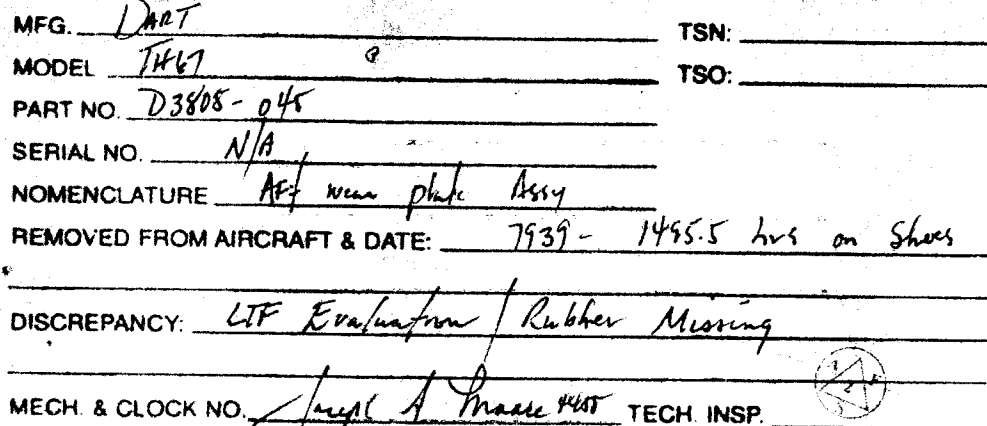 MFG. DART TSN:
MODEL TH67 TSO:
PART NO. D3805-045
SERIAL NO. N/A
NOMENCLATURE Aft wear plate Assy
REMOVED FROM AIRCRAFT & DATE: 7939 - 1495.5 hrs on Shoes
DISCREPANCY: LTF Evaluation / Rubber Missing
MECH. & CLOCK NO. Joseph A Moore TECH. INSP.